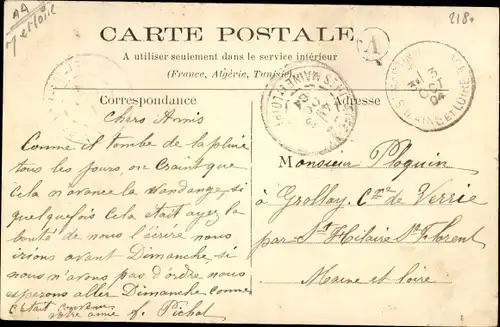 AA
Met Loire
218.
CARTE POSTALE
A
A utiliser seulement dans le service intérieur
(France, Algérie, Tunisie)
Correspondance
Adresse
chers Amis
Comme il tombe de la pluie
tous les jours, on Craint que
Cela n'avance la Vendange, si
quelquefois Cela était ayez la
bonté de nous l'écrire nous
irions avant Dimanche, si
nous n'avons pas d'ordre nous
esperons aller Dimanche comme
c'était convenu
votre amie f. Pichot
Monsieur Ploquin
à Grollay, Cne de Verrie
par St Hilaire St Florent
Maine et loire